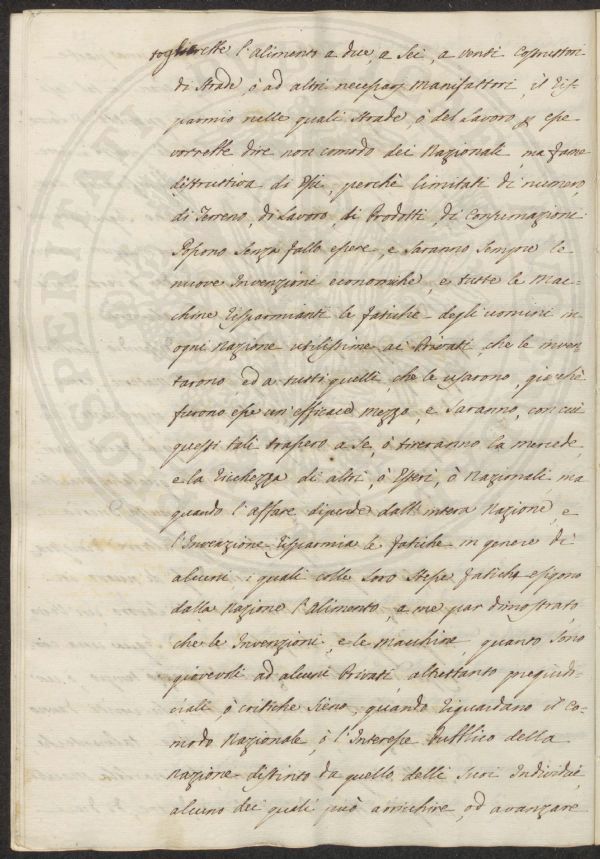 toglierette l'alimento a due, a sei, a venti Costruttori
di Strade, ò ad altri necessarj Manifattori, il Ris-
parmio nelle quali Strade, ò del Lavoro, esse
vorrette dire non comodo dei Nazionali, ma fame
distruttiva di Essi, perchè limitati di numero,
di Terreno, di Lavoro, di Prodotti, di Consumazione.
Possono senza fallo essere, e saranno sempre le
nuove Invenzioni economiche, e tutte le Mac-
chine risparmianti le fatiche degli uomini in
ogni Nazione utilissime ai Privati, che le inven-
tarono ed a tutti quelli, che le usarono, giacchè
furono esse un'efficace mezzo, e saranno, con cui
questi tali trassero a se, ò tireranno la mercede,
e la ricchezza di altri, ò Esteri, ò Nazionali, ma
quando l'affare dipende dall'intera Nazione, e
l'Invenzione risparmia le fatiche in genere di
alcuni, i quali colle loro stesse fatiche esigono
dalla Nazione l'alimento, a me par dimostrato,
che le Invenzioni, e le Macchine, quanto sono
giovevoli ad alcuni Privati, altrettanto pregiudi-
ciali, ò critiche sieno, quando riguardano il Co-
modo Nazionale, ò l'Interesse Pubblico della
Nazione distinto da quello delli suoi Individui,
alcuno dei quali può arricchire, od avanzare
PROSPERITATI